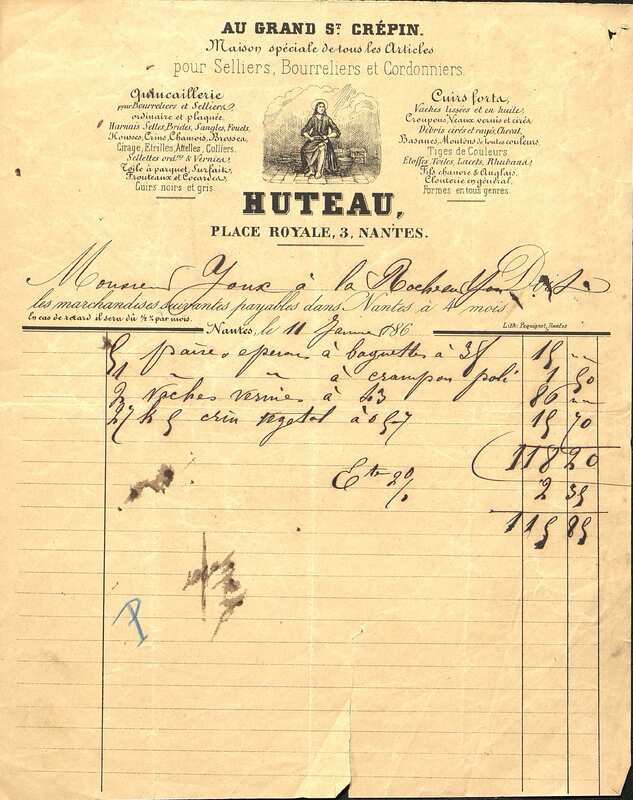 AU GRAND ST. CRÉPIN.
Maison spéciale de tous les Articles
pour Selliers, Bourreliers et Cordonniers.
Quincaillerie
pour Bourreliers et Selliers,
ordinaire et plaquée.
Harnais, Selles, Brides, Sangles, Fouets,
Housses, Crins, Chamois, Brosses,
Cirage, Etrilles, Attelles, Colliers,
Sellettes ordres & Vernies,
Toile à parquet, Surfaix,
Frontaux et Cocardes,
Cuirs noirs et gris.
Cuirs forts,
Vaches lissées et en huile,
Croupons, Veaux vernis et cirés,
Débris cirés et rayé, Cheval,
Basanes, Moutons de toutes couleurs,
Tiges de Couleurs,
Etoffes, Toiles, Lacets, Rhubans,
Fils chanvre & Anglais,
Clouterie en général,
Formes en tous genres.
HUTEAU,
PLACE ROYALE, 3, NANTES.
Monsieur Youx à la Roche sur Yon Doit
les marchandises suivantes payables dans Nantes à 4 mois
En cas de retard il sera dû ½ % par mois.
Nantes, le 11 Janvier 186
Lith. Pequignot, Nantes
5 paires eperons à baguettes à 3f 15 "
1 " " à crampon poli 1 50
2 Vaches vernies à 43 86 "
27 k 5 crin vegetal à 0 57 15 70
118 20
Ete 2% 2 35
115 85
P